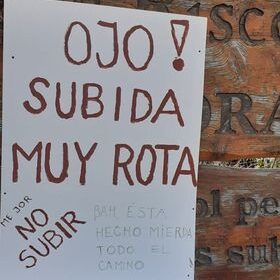 OJO!
SUBIDA
MUY ROTA
MEJOR
NO
SUBIR
BAH ESTA
HECHO MIERDA
TODO EL
CAMINO